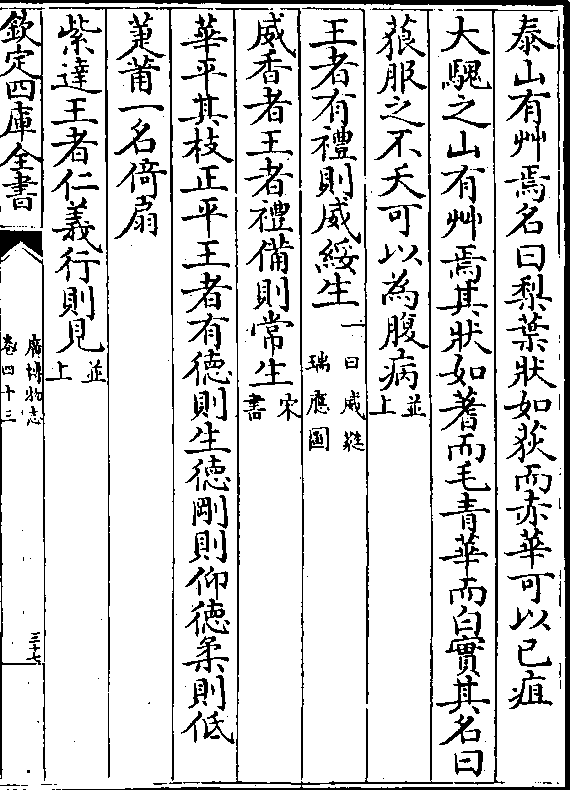 泰山有艸焉名曰梨葉狀如荻而赤華可以已疽
大騩之山有艸焉其狀如蓍而毛青華而白實其名曰
蒗服之不夭可以為腹病並上
王者有禮則威綏生一曰威蕤瑞應圖
威香者王者禮備則常生宋書
華平其枝正平王者有德則生德剛則仰德柔則低
萐莆一名倚扇
紫達王者仁義行則見並上
欽定四庫全書
廣博物志
卷四十三
三十七